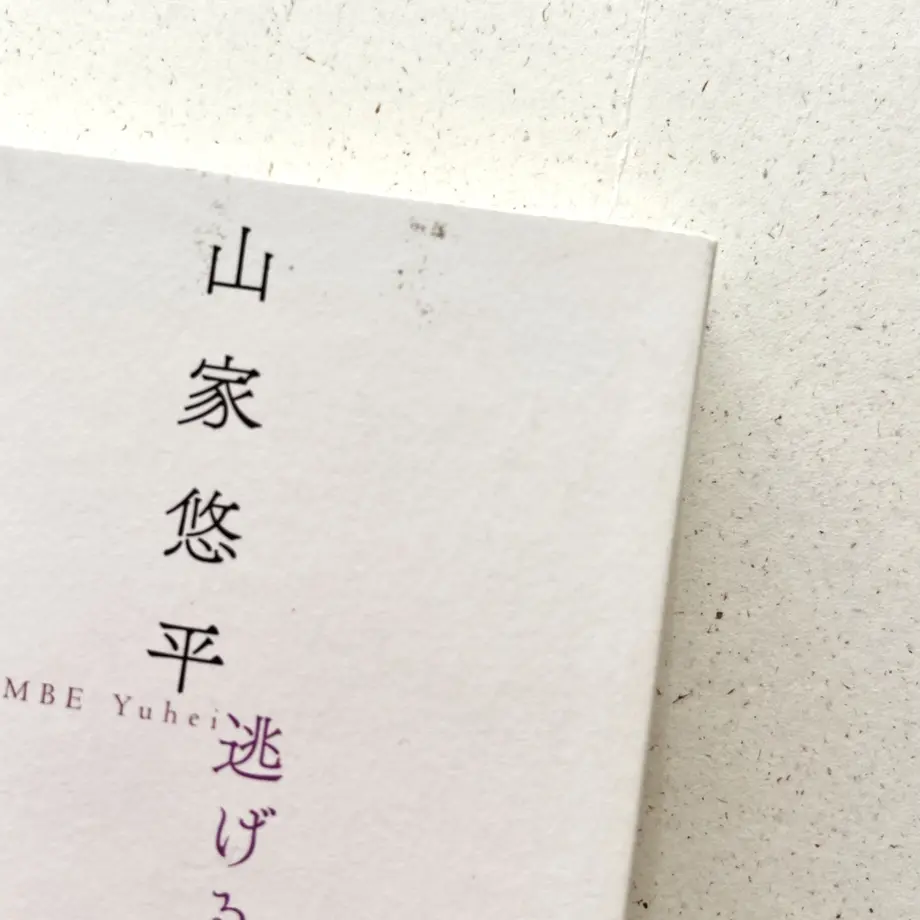 山家悠平
MBE Yuhei
逃げる